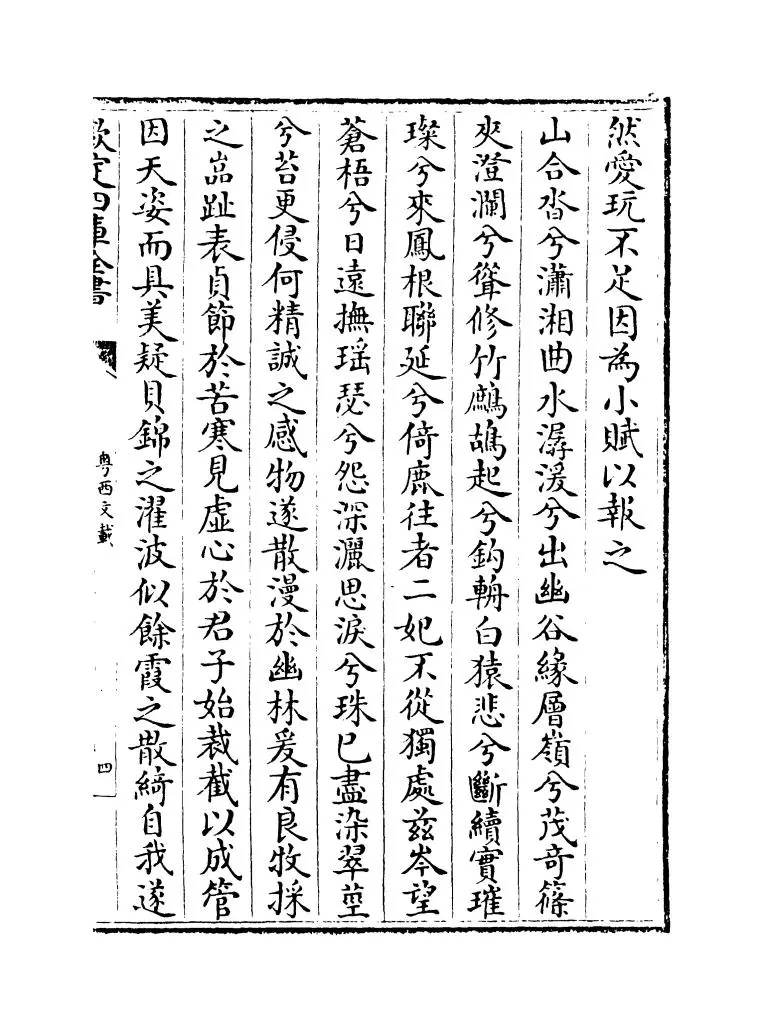 然愛玩不足因為小賦以報之
山合沓兮瀟湘曲水潺湲兮出幽谷緣層嶺兮茂竒篠
夾澄瀾兮聳修竹鷓鴣起兮鈎輈白猿悲兮斷續實璀
璨兮來鳳根聯延兮倚鹿往者二妃不從獨處兹岑望
蒼梧兮日遠撫瑶瑟兮怨深灑思淚兮珠已盡染翠莖
兮苔更侵何精誠之感物遂散漫於幽林爰有良牧採
之嵓趾表貞節於苦寒見虛心於君子始裁截以成管
因天姿而具美疑貝錦之濯波似餘霞之散綺自我遂
欽定四庫全書
粤西文載
四